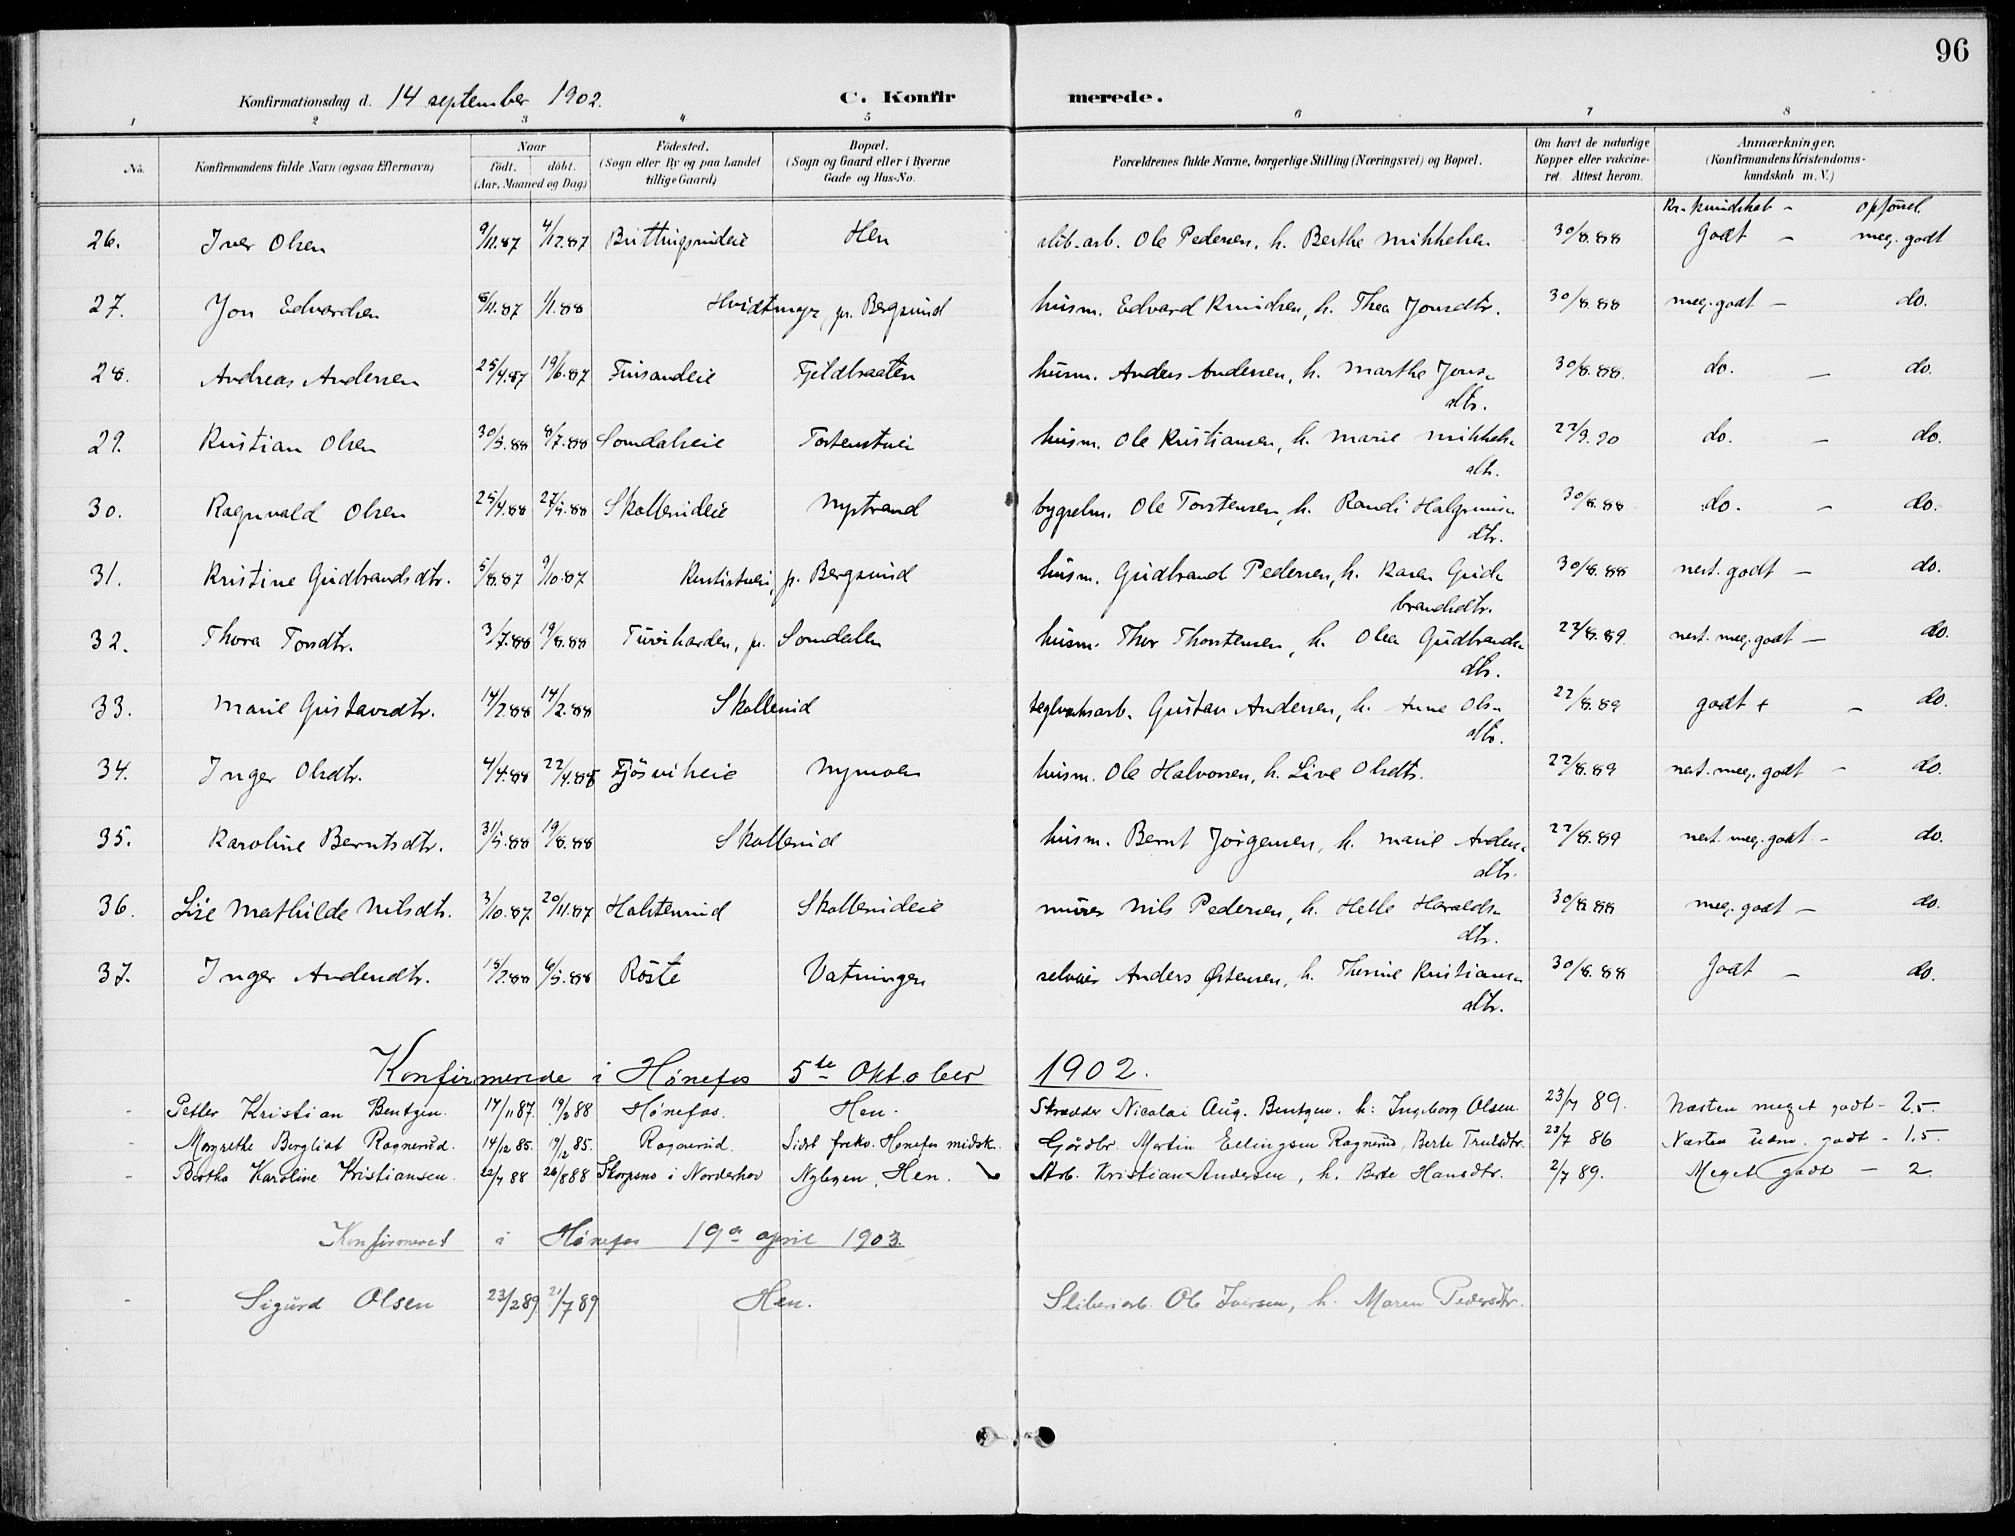 96
Konfirmationsdag d. 14 september 1902.
C. Konfirmerede.
1 2 3 4 5 6 7 8
No.
Konfirmandens fulde Navn (ogsaa Efternavn)
Naar
født. døbt.
(Aar, Maaned og Dag)
Fødested.
(Sogn eller By og paa Landet
tillige Gaard)
Bopæl.
(Sogn og Gaard eller i Byerne
Gade og Hus-No.
Forældrenes fulde Navne, borgerlige Stilling (Næringsvei) og Bopæl.
Om havt de naturlige
Kopper eller vakcine-
ret. Attest herom.
Anmærkninger.
(Konfirmandens Kristendoms-
kundskab m. V.)
Kr.kundskab - opførsel.
26. Iver Olsen 9/11.87 4/12.87 Hen slib.arb. Ole Pedersen, h. Berthe Mikkelsen 30/8.88 Godt - meg. godt
27. Jon Edvardsen 8/11.87 1/1.88 Hvidtmyr, p. Bergsund husm. Edvard Knudsen, h. Thea Jonsdtr. 30/8.88 meg. godt - do.
28. Andreas Andersen 25/4.87 19/6.87 Finsandeie Fjeldbraaten husm. Anders Andersen, h. Marthe Jons-
dtr. 30/8.88. do. - do.
29. Kristian Olsen 30/5.88 8/7.88 Somdaleie Torstenstuen husm. Ole Kristiansen, h. Marie Mikkels-
dtr. 22/9.90 do. - do.
30. Ragnvald Olsen 25/4.88 27/5.88 Skollerudeie Nystrand bygselm. Ole Torstensen, h. Randi Halgrims-
dtr. 30/8.88 do. - do.
31. Kristine Gudbrandsdtr. 5/8.87 9/10.87 p. Bergsund husm. Gudbrand Pedersen, h. Karen Gud-
brandsdtr. 30/8.88 nest. godt - do.
32. Thora Torsdtr. 3/7.88 19/8.88 p. Somdalen husm. Thor Thorstensen, h. Olea Gudbrands-
dtr. 22/8.89 nest. meg. godt - do.
33. Marie Gustavsdtr. 14/2.88 14/2.88 Skollerud teglverksarb. Gustav Andersen, h. Anne Ols-
dtr. 22/8.89 godt + - do.
34. Inger Olsdtr. 4/4.88 22/4.88 Fjøsvikeie Nymoen husm. Ole Halvorsen, h. Live Olsdtr. 22/8.89 nest. meg. godt - do.
35. Karoline Berntsdtr. 31/5.88 19/8.88 Skollerud husm. Bernt Jörgensen, h. Marie Anders-
dtr. 22/8.89 nest. meg. godt - do.
36. Lise Mathilde Nilsdtr. 3/10.87 20/11.87 Halstenrud Skollerudeie murer Nils Pedersen, h. Helle Haralds-
dtr. 30/8.88 meg. godt - do.
37. Inger Andersdtr. 15/2.88 6/5.88 Röste Vatningen selveier Anders Østensen, h. Thorine Kristians-
dtr. 30/8.88 Godt - do.
Konfirmerede i Hønefos 5te Oktober 1902.
- Petter Kristian Bentzen. 17/11 87. 19/2 88 Hønefos. Hen. Skrædder Nicolai Aug. Bentzen. h: Ingeborg Olsen. 23/7 89. Næsten meget godt - 2.5.
- Margrethe Bergliot Ragnerud. 14/12 85. 19/2 85. Ragnerud. Sidst frekv. Hønefos midsk. Gårdbr. Martin Ellingsen Ragnerud, Berte Trulsdtr. 23/7 86 Næsten udm. godt - 1.5.
- Bertha Karoline Kristiansen. 22/7 88 26/8 88 i Norderhov Hen. Arb. Kristian Andersen, h. Berte Hansdtr. 2/7 89. Meget godt - 2
Konfirmeret i Hønefos 19de april 1903.
- Sigurd Olsen 23/2 89 21/7 89 Hen. Sliberiarb. Ole Iversen, h. Maren Pedersdtr.